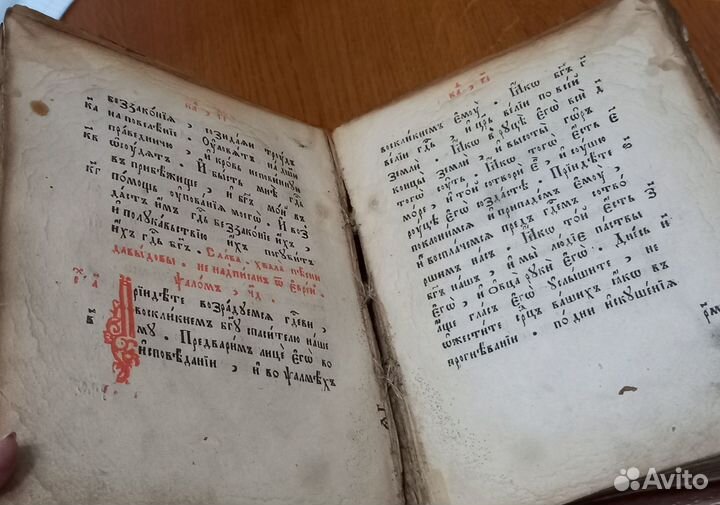 беззаконїѧ, созидаѧи трꙋдъ
ка на повелѣнїе. Оуловѧтъ на дш҃ꙋ
праведничю, и҆ кровь неповиннꙋю
кв ѡ҆сꙋдѧтъ. И҆ бысть мнѣ гдь
въ прибѣжище, и҆ бг҃ъ мой въ
кг помощь оупованїѧ моегѡ. И҆ возъ
дастъ и҆мъ гдь беззаконїе и҆хъ,
и҆ по лꙋкавствїю и҆хъ погꙋбитъ
и҆хъ гдь бг҃ъ. Слава. хвала пѣсни
давыдовы. не надписанъ ѿ еврей.
ѱаломъ, чд.
а Прїидѣте возрадꙋемсѧ гдеви,
в воскликнемъ бг҃ꙋ спасителю наше
мꙋ. Предваримъ лице є҆гѡ̀ во
и҆сповѣданїи, и҆ во ѱалмѣхъ
воскликнемъ є҆мꙋ̀. И҆кѡ бг҃ъ г
велїи гдь, и҆ цр҃ь велїи по всей
земли. И҆кѡ в рꙋцѣ є҆гѡ̀ вси д
концы земли, и҆ высоты горъ
тогѡ сꙋть. И҆кѡ тогѡ є҆сть є҆
море, и҆ той сотвори є҆, и҆ сꙋшю
рꙋцѣ є҆гѡ̀ создастѣ. Прїидѣте ѕ
поклонимсѧ и҆ припадемъ є҆мꙋ̀,
и҆ восплачемсѧ предъ гдемъ сотво
ршимъ насъ. И҆кѡ той є҆сть з
бг҃ъ нашъ, и҆ мы людїе паствы
є҆гѡ̀, и҆ ѻвца рꙋки є҆гѡ̀. Днесь и҆
аще гласъ є҆гѡ̀ оуслышите, не
ѡ҆жестите срдцъ вашихъ и҆кѡ в
прогнѣванїи. по дни и҆скꙋшенїѧ
Avito